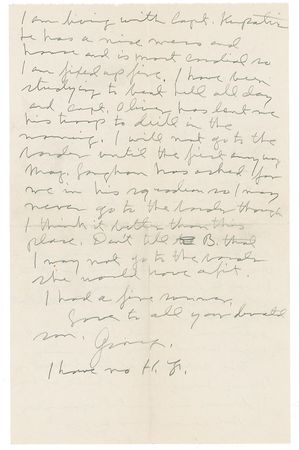 I am living with Capt.
he has a nice mess and
house and is most cordial so
I am fixed up fine. I have been
studying to beat hell all day
and Capt. has lent me
his troop to drill in the
morning. I will not go to the
border until the first any way
Maj. Langhorn has asked for
me in his squadron so I may
never go to the border though
I think it better than this
place. Don't tell B. that
I may not go to the border
she would have a fit.
I had a fine
Love to all your devoted
son. George.
I have no H. F.